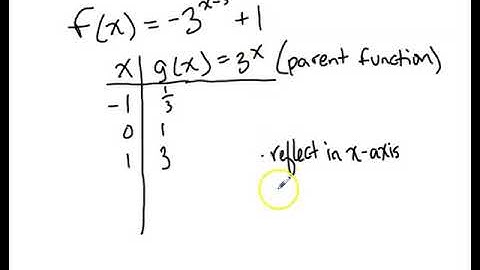 f(x) = -3^x- + 1
x | g(x) = 3^x (parent function)
-1 | 1/3
0 | 1
1 | 3
· reflect in x-axis